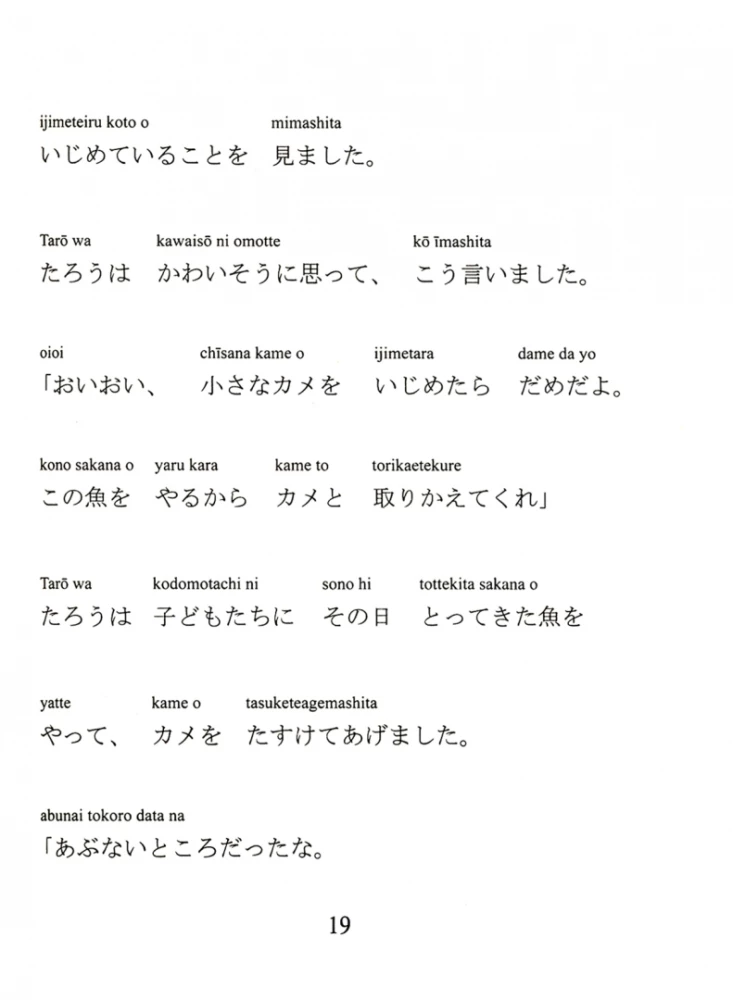 ijimeteiru koto o mimashita
いじめていることを 見ました。
Tarō wa kawaisō ni omotte kō īmashita
たろうは かわいそうに思って、 こう言いました。
oioi chīsana kame o ijimetara dame da yo
「おいおい、 小さなカメを いじめたら だめだよ。
kono sakana o yaru kara kame to torikaetekure
この魚を やるから カメと 取りかえてくれ」
Tarō wa kodomotachi ni sono hi tottekita sakana o
たろうは 子どもたちに その日 とってきた魚を
yatte kame o tasuketeagemashita
やって、 カメを たすけてあげました。
abunai tokoro data na
「あぶないところだったな。
19